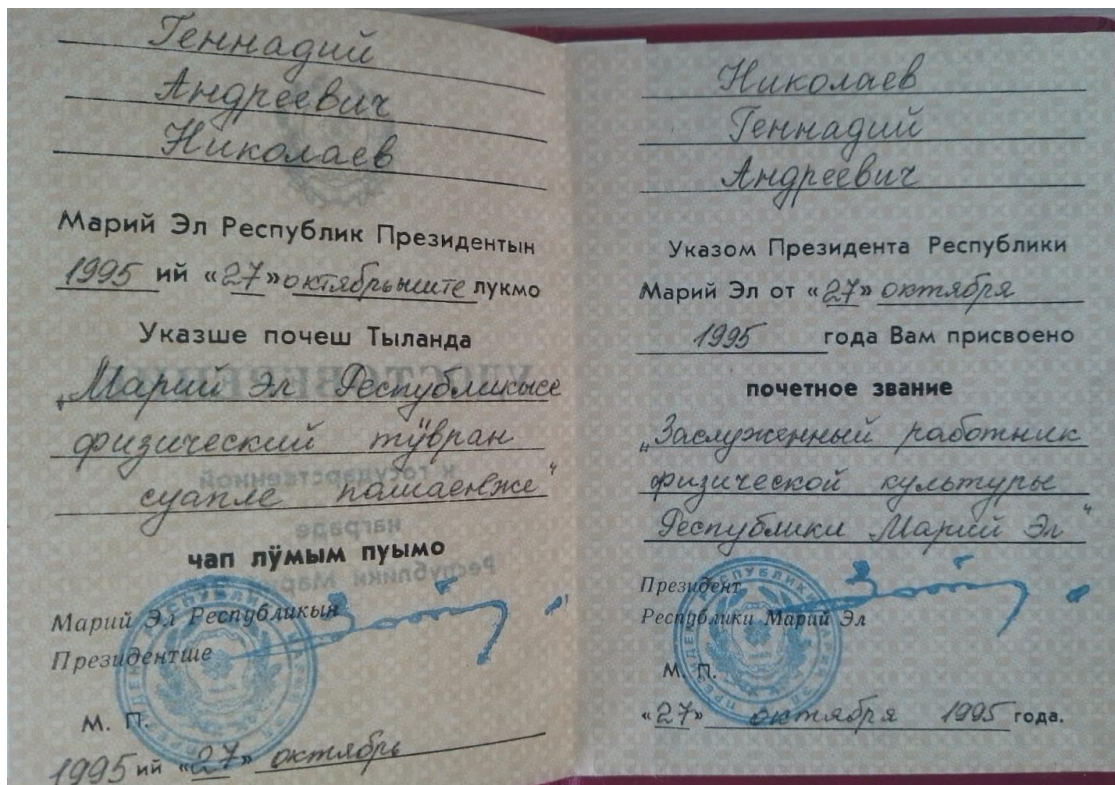 Геннадий
Андреевич
Николаев
Марий Эл Республик Президентын
1995 ий «27» октябрьыште лукмо
Указше почеш Тыланда
„Марий Эл Республикысе
физический тӱвран
суапле пашаеҥже“
чап лӱмым пуымо
Марий Эл Республикын
Президентше
М. П.
1995 ий «27» октябрь
Николаев
Геннадий
Андреевич
Указом Президента Республики
Марий Эл от «27» октября
1995 года Вам присвоено
почетное звание
„Заслуженный работник
физической культуры
Республики Марий Эл“
Президент
Республики Марий Эл
М. П.
«27» октября 1995 года.